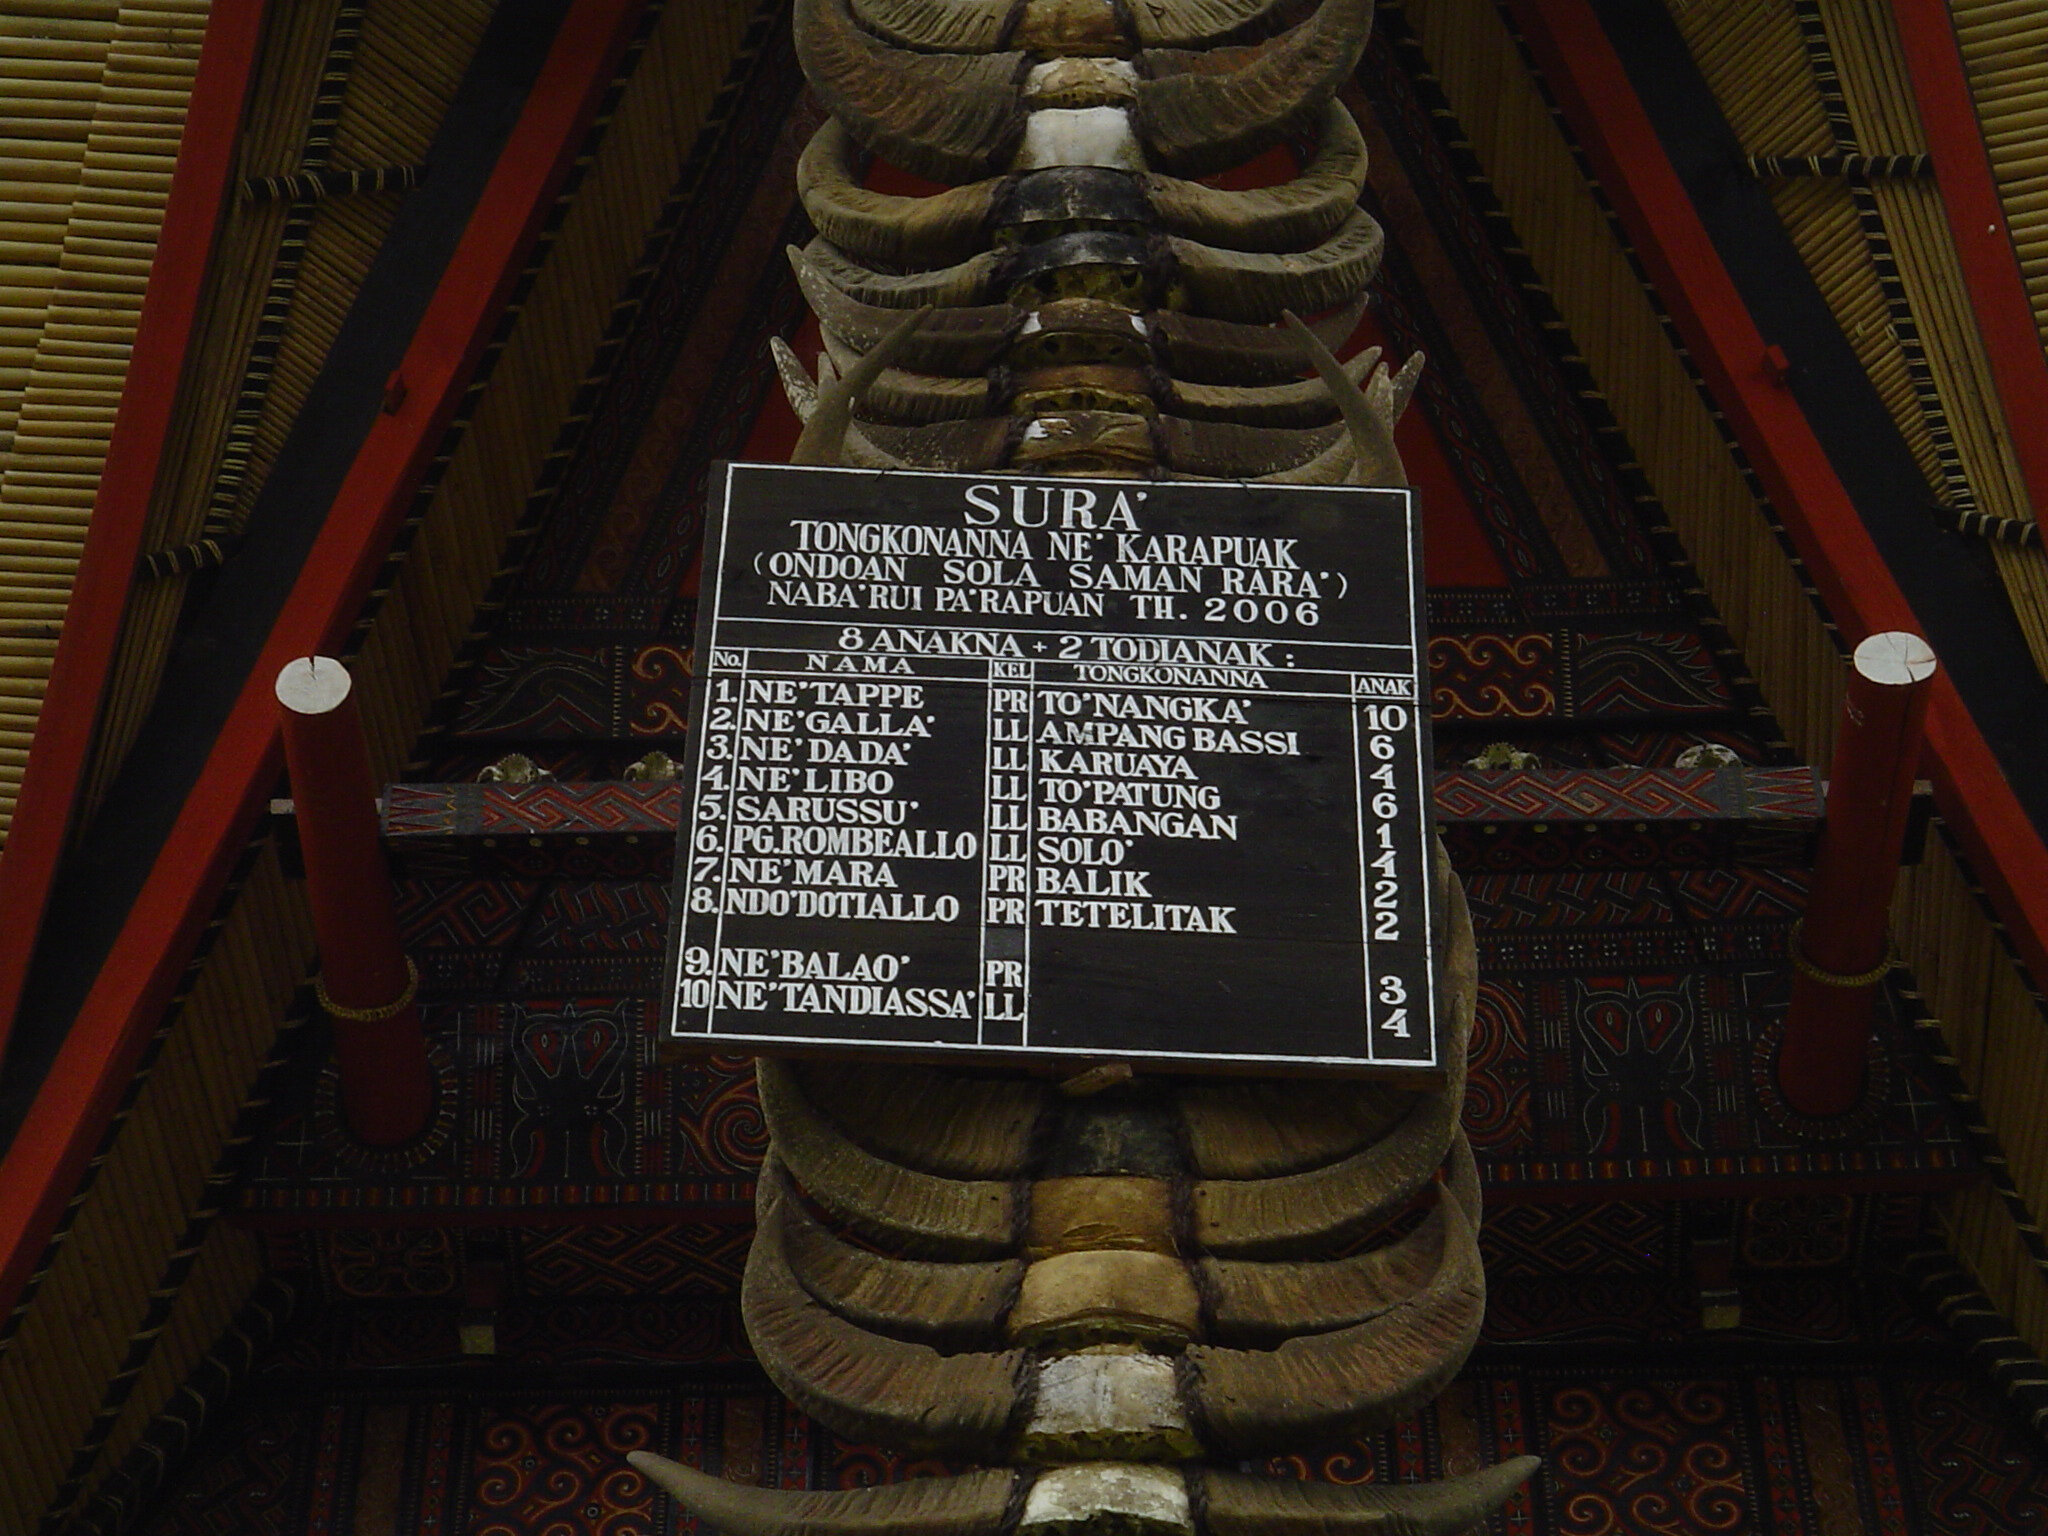 SURA'
TONGKONANNA NE' KARAPUAK
(ONDOAN SOLA SAMAN RARA')
NABA'RUI PA'RAPUAN TH. 2006
8 ANAKNA + 2 TODIANAK :
No. NAMA KEL TONGKONANNA ANAK
1. NE'TAPPE PR TO'NANGKA' 10
2. NE'GALLA' LL AMPANG BASSI 6
3. NE'DADA' LL KARUAYA 4
4. NE'LIBO LL TO'PATUNG 6
5. SARUSSU' LL BABANGAN 1
6. PG.ROMBEALLO LL SOLO' 4
7. NE'MARA PR BALIK 2
8. NDO'DOTIALLO PR TETELITAK 2
9. NE'BALAO' PR 3
10 NE'TANDIASSA' LL 4